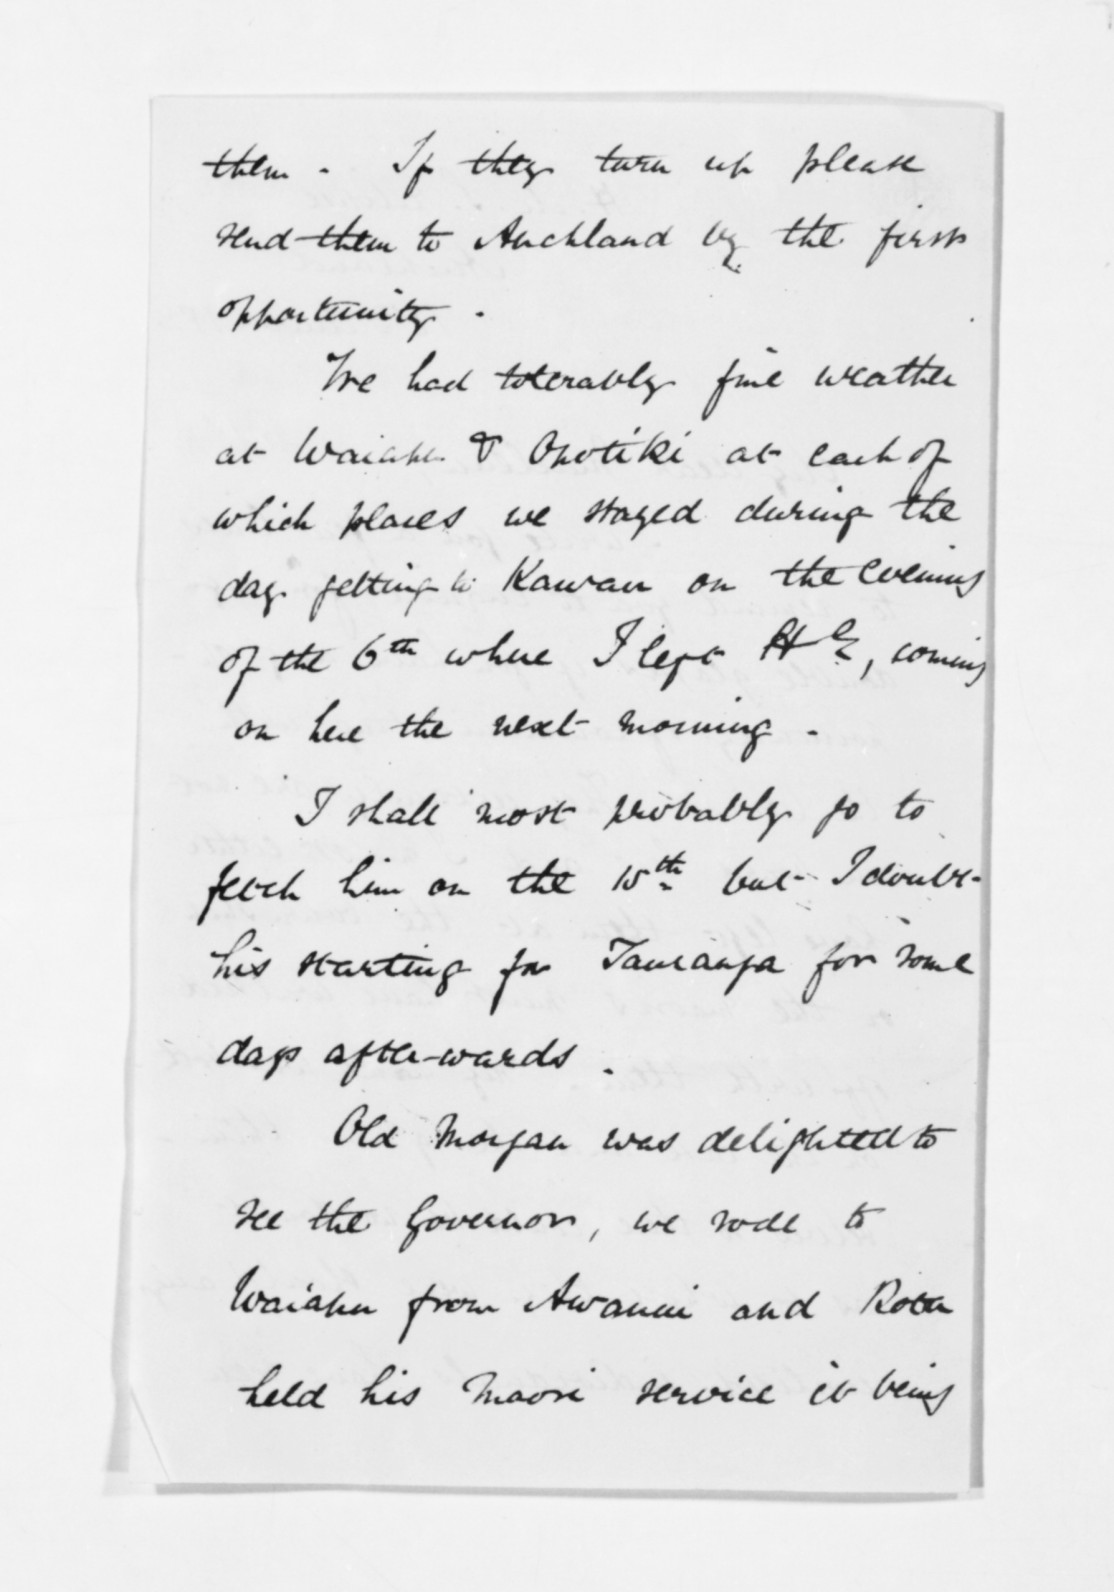 them. If they turn up please
send them to Auckland by the first
opportunity.
We had tolerably fine weather
at Waiapu & Opotiki at each of
which places we stayed during the
day getting to Kawau on the evening
of the 6th where I left HE, coming
on here the next morning.
I shall most probably go to
fetch him on the 15th but I doubt
his starting for Tauranga for some
days afterwards.
Old Morgan was delighted to
see the Governor, we rode to
Waiapu from Awanui and Rota
held his Maori service it being